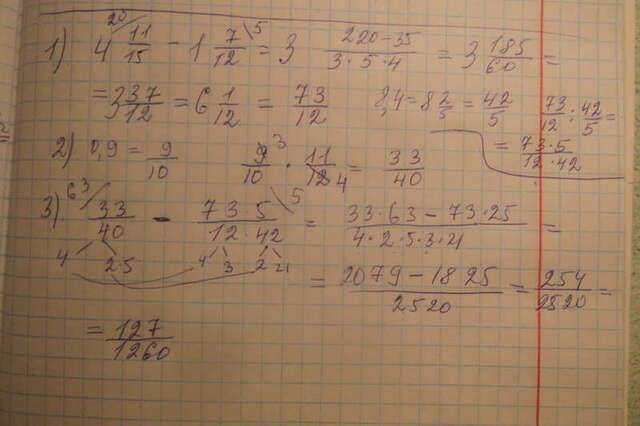 1) 4 11/15 - 1 7/12 = 3 (220-35)/(3·5·4) = 3 185/60 =
= 3 37/12 = 6 1/12 = 73/12 8,4 = 8 2/5 = 42/5 73/12 : 42/5 =
= (73·5)/(12·42)
2) 0,9 = 9/10 9/10 · 11/12 = 33/40
3) 33/40 - (73 5)/(12·42) = (33·63 - 73·25)/(4·2·5·3·21) =
4 2 5 4 3 2 21
= (2079 - 1825)/2520 = 254/2520 =
= 127/1260